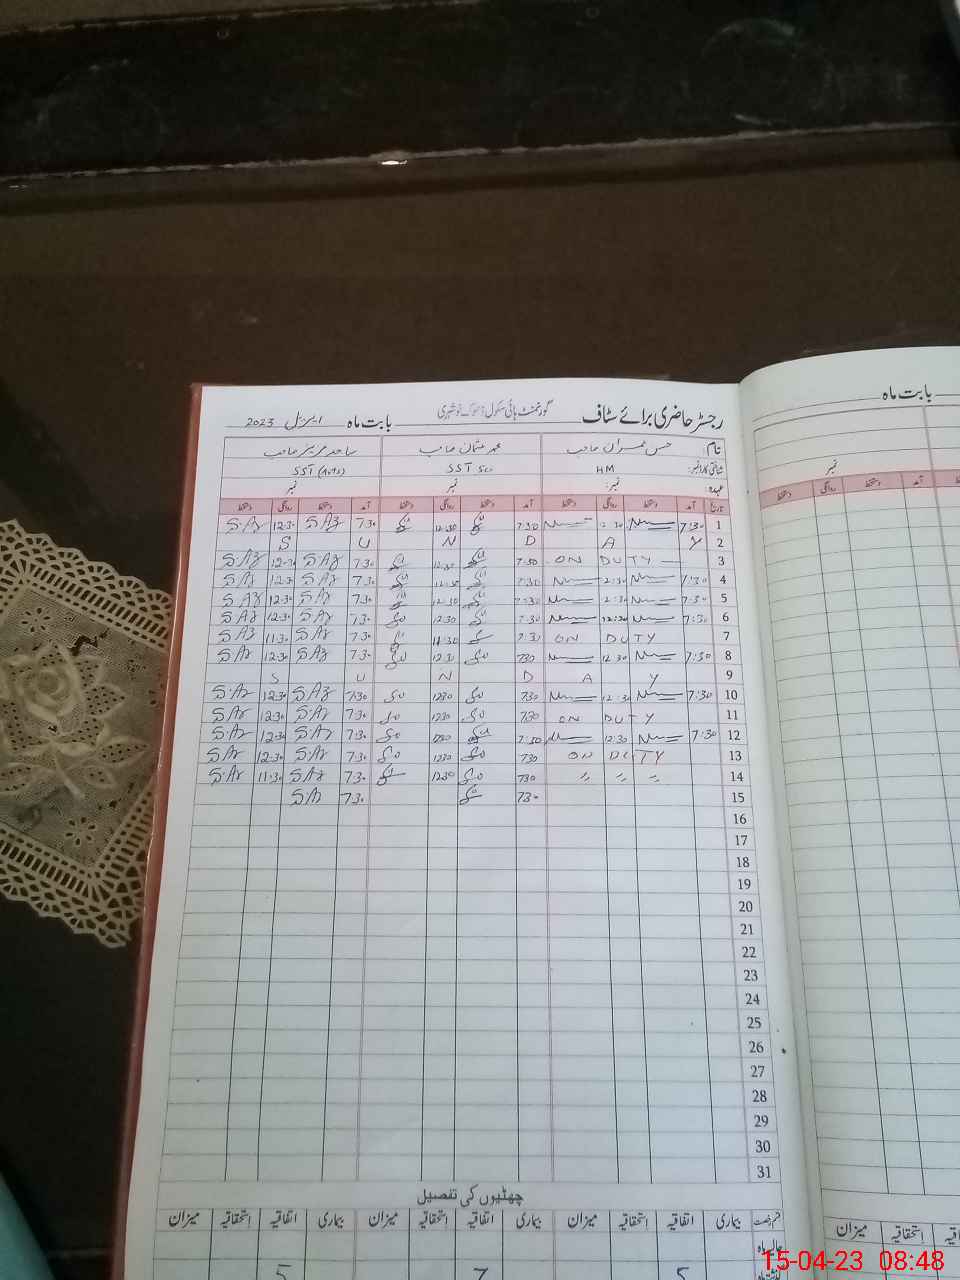 رجسٹر حاضری برائے سٹاف گورنمنٹ ہائی سکول بابت ماہ اپریل 2023
بابت ماہ
نام: حسن عمران صاحب محمد عثمان صاحب ساجد عزیز صاحب
شناختی کارڈ نمبر: HM SST Sci SST (Arts)
عہدہ نمبر: نمبر نمبر
نمبر
تاریخ آمد دستخط روانگی دستخط آمد دستخط روانگی دستخط آمد دستخط روانگی دستخط
آمد دستخط روانگی دستخط
1 7:30 12:30 7:30 12:30 7:30 SAz 12:30 SAz
2 S U N D A Y
3 ON DUTY 7:30 12:30 7:30 SAz 12:30 SAz
4 7:30 12:30 7:30 12:30 7:30 SAz 12:30 SAz
5 7:30 12:30 7:30 12:30 7:30 SAz 12:30 SAz
6 7:30 12:30 7:30 12:30 7:30 SAz 12:30 SAz
7 ON DUTY 7:30 11:30 7:30 SAz 11:30 SAz
8 7:30 12:30 730 12:30 7:30 SAz 12:30 SAz
9 S U N D A Y
10 7:30 12:30 730 1230 7:30 SAz 12:30 SAz
11 ON DUTY 730 1230 7:30 SAz 12:30 SAz
12 7:30 12:30 7:30 1230 7:30 SAz 12:30 SAz
13 ON DUTY 730 1230 7:30 SAz 12:30 SAz
14 〃 〃 〃 730 1230 7:30 SAz 11:30 SAz
15 730 7:30 SAz
16
17
18
19
20
21
22
23
24
25
26
27
28
29
30
31
چھٹیوں کی تفصیل
قسم رخصت بیماری اتفاقیہ استحقاقیہ میزان بیماری اتفاقیہ استحقاقیہ میزان بیماری اتفاقیہ استحقاقیہ میزان
میزان استحقاقیہ
حالیہ ماہ
5 7 5
15-04-23 08:48